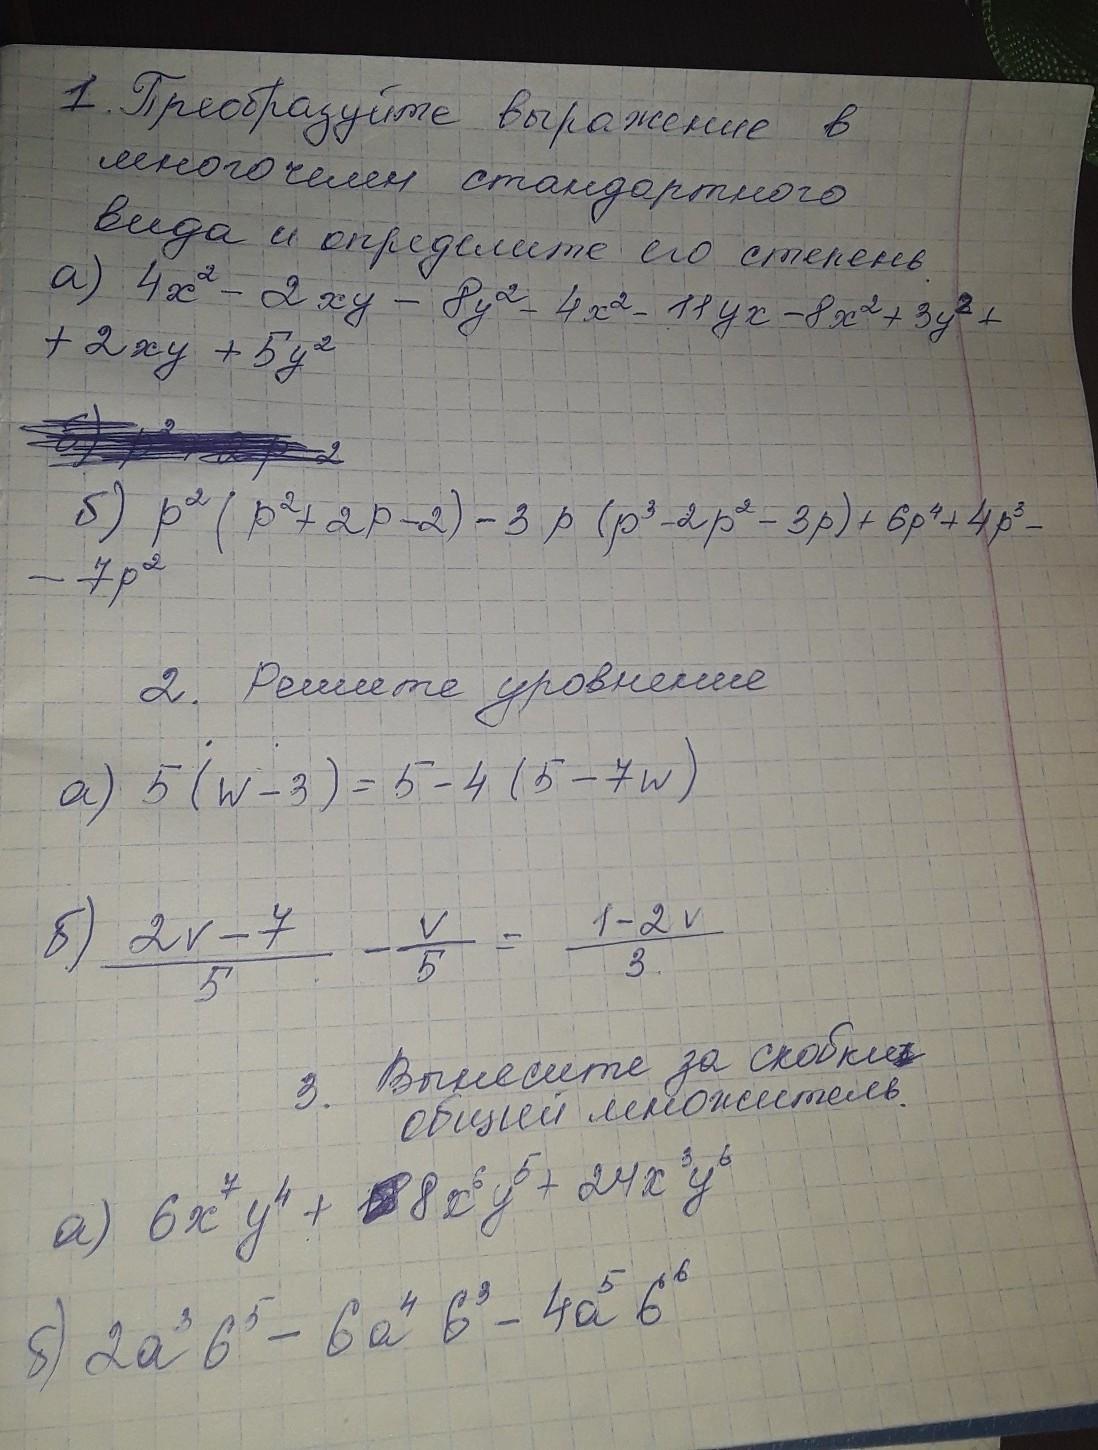 1. Преобразуйте выражение в
многочлен стандартного
вида и определите его степень.
а) 4x² - 2xy - 8y² - 4x² - 11yx - 8x² + 3y² +
+ 2xy + 5y²
б) p² (p² + 2p - 2) - 3p (p³ - 2p² - 3p) + 6p⁴ + 4p³ -
- 7p²
2. Решите уровнение
а) 5(w - 3) = 5 - 4(5 - 7w)
б) (2v - 7)/5 - v/5 = (1 - 2v)/3
3. Вынесите за скобки
общий множитель.
а) 6x⁷y⁴ + 8x⁶y⁵ + 24x³y⁶
б) 2a³b⁵ - 6a⁴b³ - 4a⁵b⁶